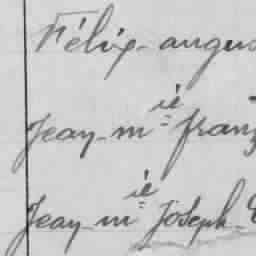 Félix-augus
Jean-mie franç
Jean mie Joseph-